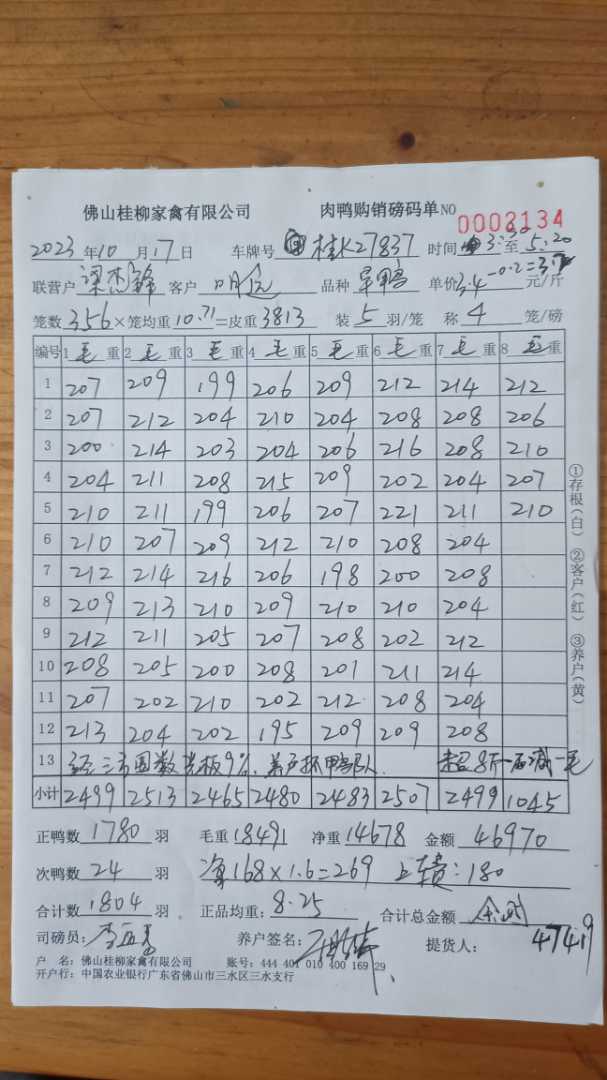 佛山桂柳家禽有限公司 肉鸭购销磅码单 NO 0003134
2023年10月17日 车牌号 桂K27837 时间 3:30至5:20
联营户 客户 品种 旱鸭 单价 3.4-0.2= 元/斤
笼数356×笼均重10.71=皮重3813 装5羽/笼 称4笼/磅
编号 1毛重 2毛重 3毛重 4毛重 5毛重 6毛重 7毛重 8毛重
1 207 209 199 206 209 212 214 212
2 207 212 204 210 204 208 208 206
3 200 214 203 204 206 216 208 210
4 204 211 208 215 209 202 204 207
5 210 211 199 206 207 221 211 210
6 210 207 209 212 210 208 204
7 212 214 216 206 198 200 208
8 209 213 210 209 210 210 204
9 212 211 205 207 208 202 212
10 208 205 200 208 201 211 214
11 207 202 210 202 212 208 204
12 213 204 202 195 209 209 208
13 经三方同数 板9%、养户抓鸭 队. 超8斤一 减一毛
小计 2499 2513 2465 2480 2483 2507 2499 1045
①存根(白) ②客户(红) ③养户(黄)
正鸭数1780羽 毛重18491 净重14678 金额46970
次鸭数24羽 净168×1.6=269 上 :180
合计数1804羽 正品均重:8.25 合计总金额 47419
司磅员: 养户签名: 提货人:
户 名:佛山桂柳家禽有限公司 账号:444 401 010 400 169 29
开户行:中国农业银行广东省佛山市三水区三水支行